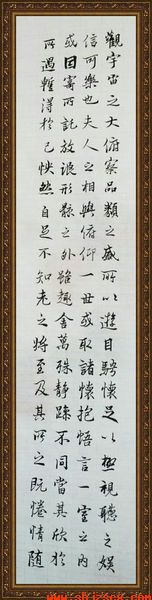 觀宇宙之大俯察品類之盛所以遊目騁懷足以極視聽之娛
信可樂也夫人之相與俯仰一世或取諸懷抱悟言一室之內
或因寄所託放浪形骸之外雖趣舍萬殊靜躁不同當其欣於
所遇暫得於己怏然自足不知老之將至及其所之既惓情隨